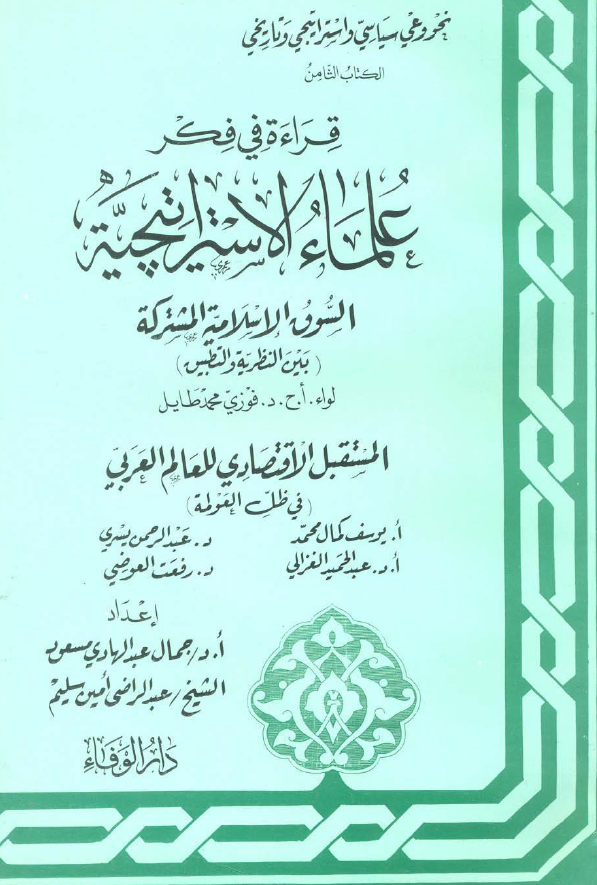 نحو وعي سياسي واستراتيجي وتاريخي
الكتاب الثامن
قراءة في فكر
علماء الاستراتيجية
السوق الإسلامية المشتركة
(بين النظرية والتطبيق)
لواء. أ.ح. د. فوزي محمد طايل
المستقبل الاقتصادي للعالم العربي
(في ظل العولمة)
أ. يوسف كمال محمد د. عبد الرحمن يسري
أ.د. عبد الحميد الغزالي د. رفعت العوضي
إعداد
أ.د/ جمال عبد الهادي مسعود
الشيخ/ عبد الراضي أمين سليم
دار الوفاء